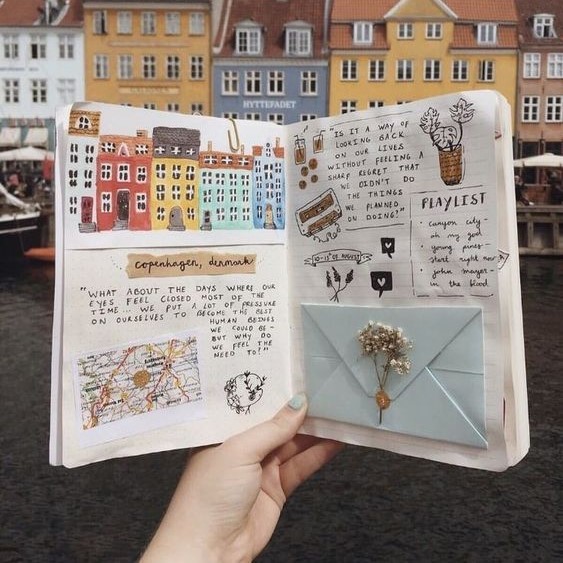 HYTTEFADET
copenhagen, denmark
"WHAT ABOUT THE DAYS WHERE OUR
EYES FEEL CLOSED MOST OF THE
TIME... WE PUT A LOT OF PRESSURE
ON OURSELVES TO BECOME THE BEST
HUMAN BEINGS
WE COULD BE -
BUT WHY DO
WE FEEL THE
NEED TO?"
"IS IT A WAY OF
LOOKING BACK
ON OUR LIVES
WITHOUT FEELING A
SHARP REGRET THAT
WE DIDN'T DO
THE THINGS
WE PLANNED
ON DOING?"
10-15TH OF AUGUST
PLAYLIST
• canyon city -
oh my god
• young pines -
start right now
• john mayer -
in the blood